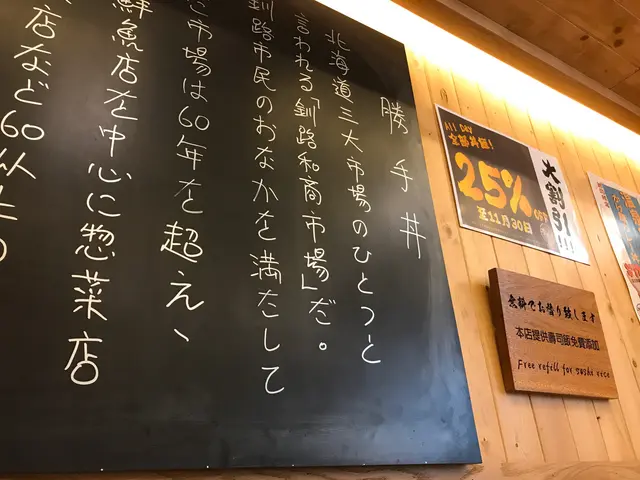 勝手丼
北海道三大市場のひとつと
言われる「釧路和商市場」だ。
釧路市民のおなかを満たして
市場は60年を超え、
鮮魚店を中心に惣菜店
店など60以上の
ALL DAY
全部丼組!
25% OFF
至11月30日
大割引!!!
無料でお替り致します
本店提供壽司飯免費添加
Free refill for sushi rice